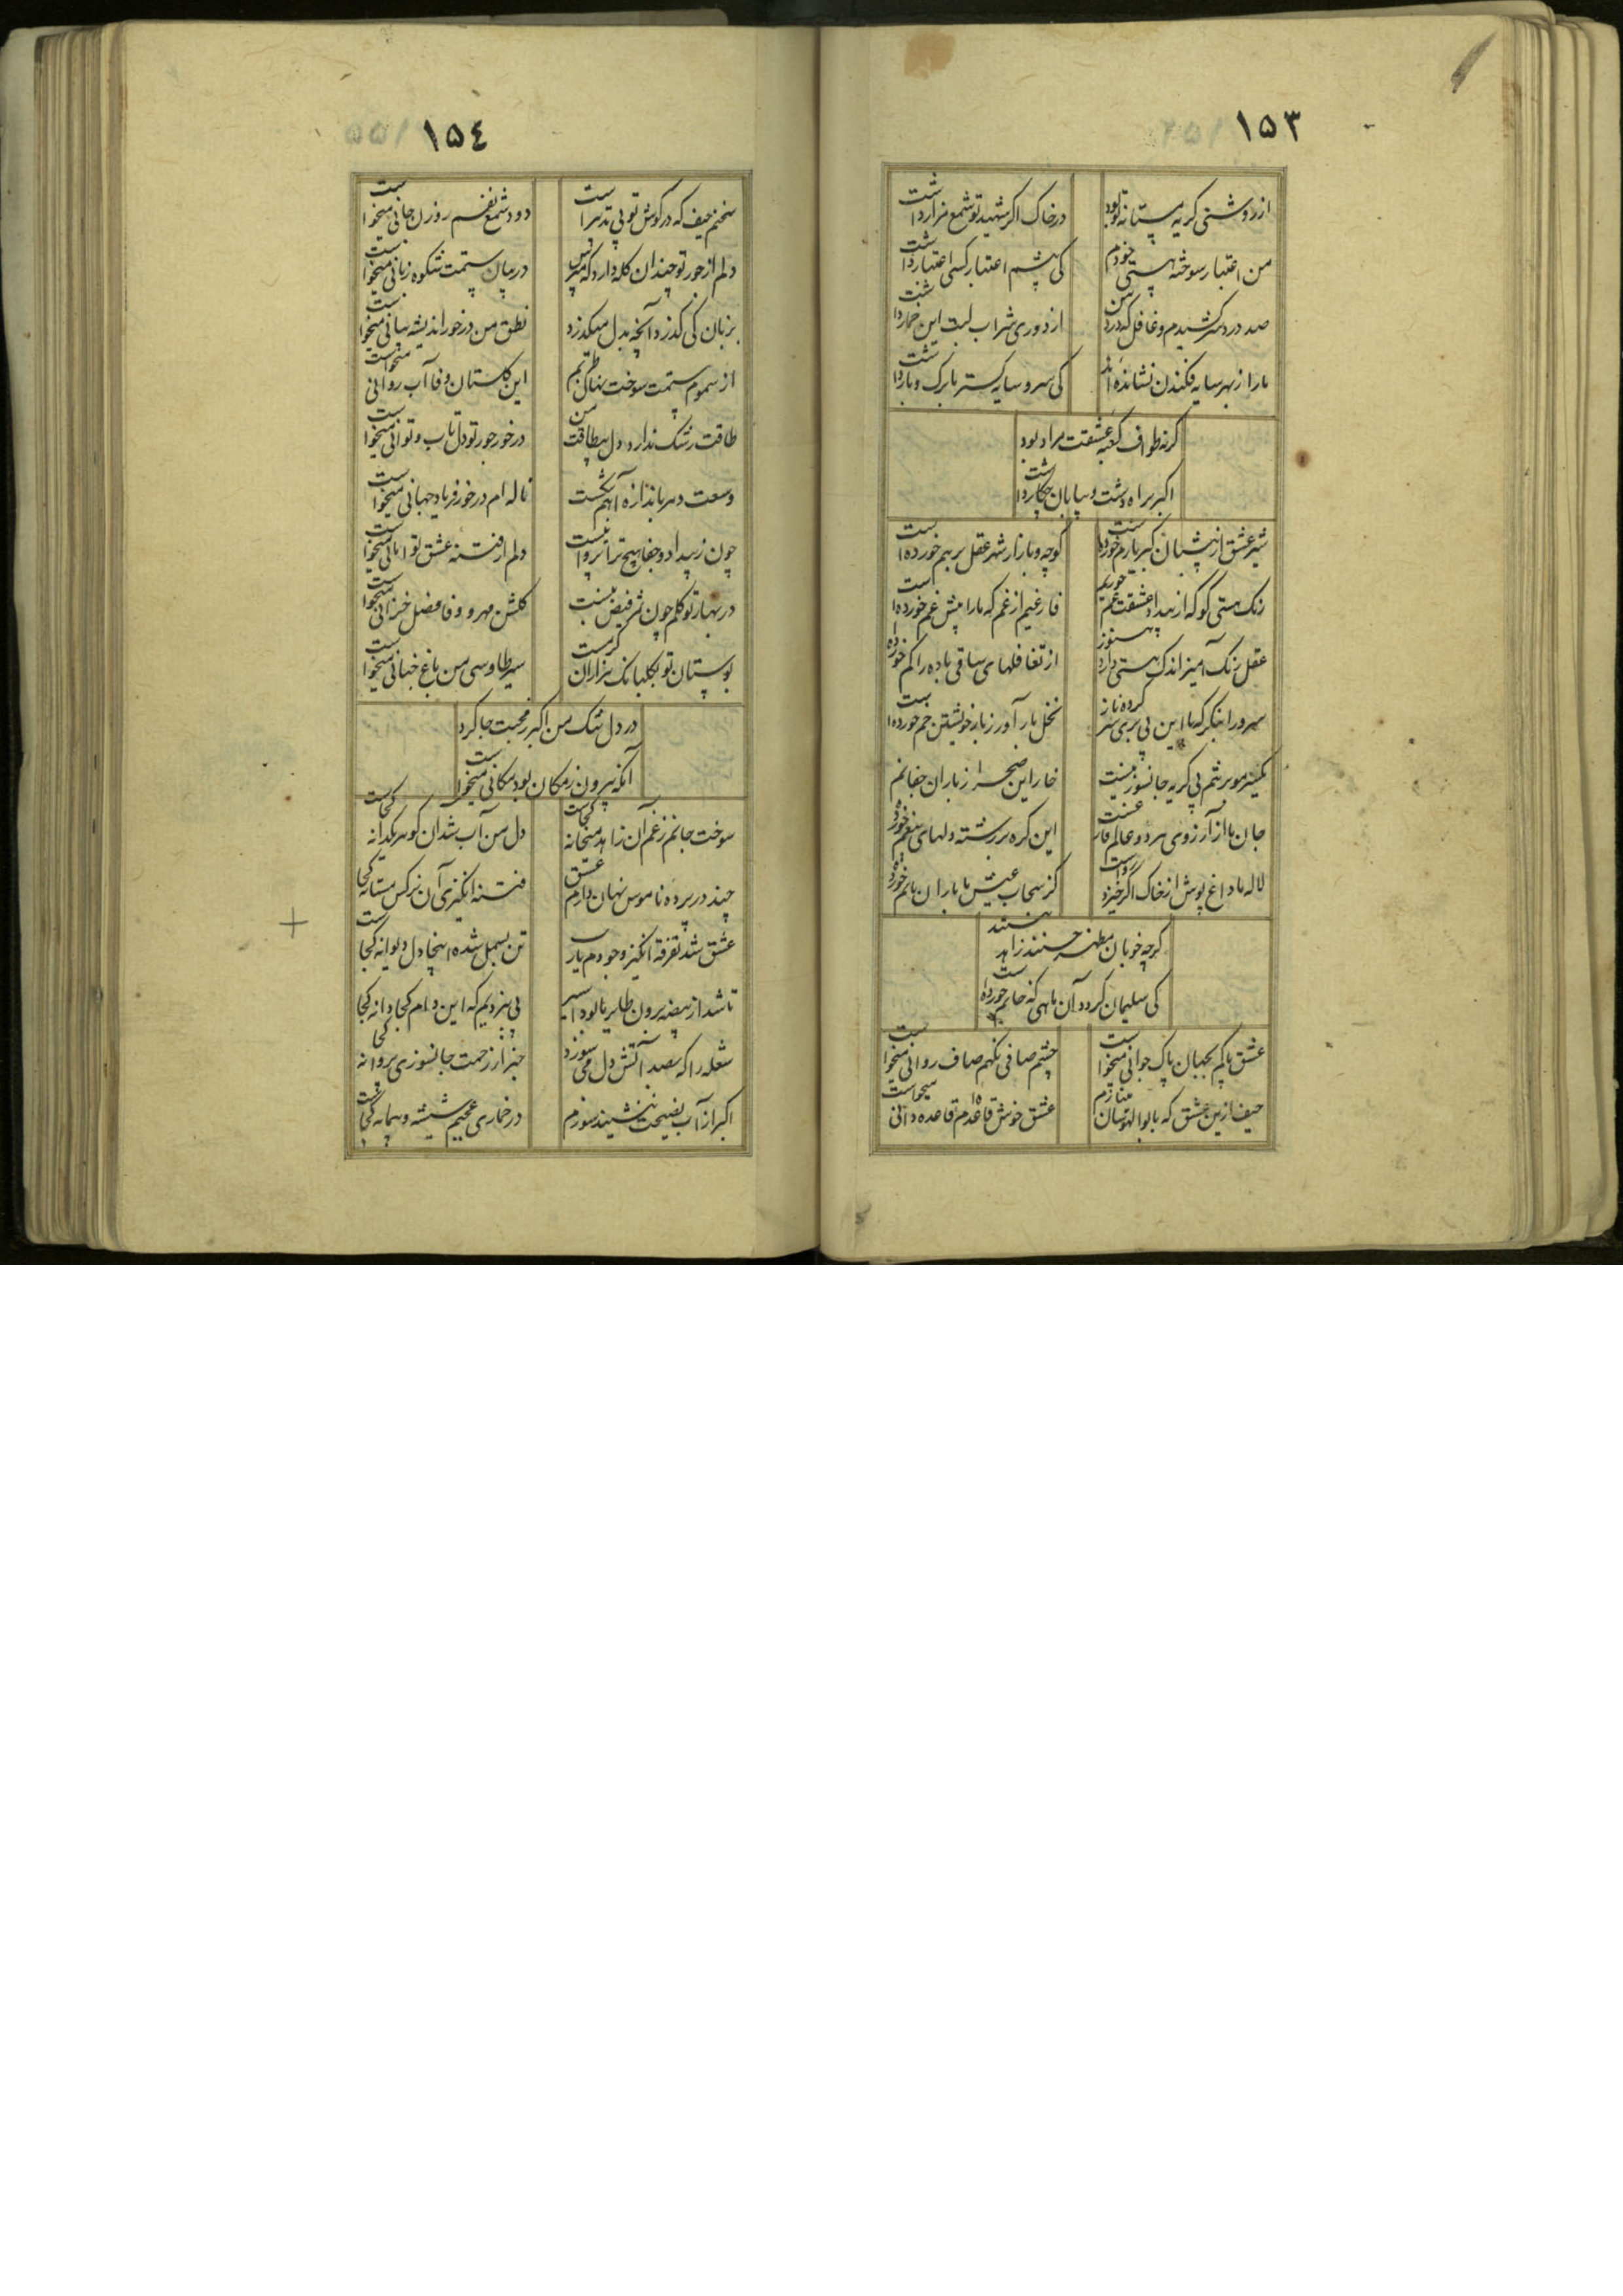 ۱۵۳
از روشنی گریه مستانه تو بود
در خاک اگر شهید تو شمع مزار داشت
من اعتبار سوخته هستی خودم
کی چشم اعتبار کسی اعتبار داشت
صد درد سر کشیدم و غافل که درد من
از دوری شراب لبت این خمار داشت
ما را ز بهر سایه فکندن نشانده اند
کی سرو سایه گستر ما برک و بار داشت
گرنه طواف کعبه عشقت مراد بود
اکبر براه دشت و بیابان چکار داشت
شیر عشق از پستان خورده است
کوچه و بازار شهر عقل بر هم خورده است
رنک هستی کو که از بیداد عشقت غم خوریم
فارغیم از غم که ما را پیش غم خورده است
عقل رنک آمیز اندک هستی دارد هنوز
از تغافلهای ساقی باده را کم خورده
سرو را بنگر که با این بی بری سر کرده ناز
نخل بار آور ز بار خویشتن خم خورده است
یکسر مو بر تنم بی گریه جانسوز نیست
خار این صحرا ز باران جفا نم
جان ما از آرزوی هر دو عالم فارغست
این گره بر رشته دلهای بیغم خورده
لاله با داغ پوش از خاک اگر خیزد رواست
کز سحاب عیش ما باران ماتم خورده
گرچه خوبان مظهر حسنند زاهد نیستند
کی سلیمان گردد آن ماهی که خاتم خورده است
عشق پاکم بجهان پاک جوانی میخواست
چشم صافی نگهم صاف روانی میخواست
حیف ازین عشق که با بوالهوسان میبازم
عشق خوش قاعده ام قاعده دانی میخواست
۱۵٤
سخنم حیف که در گوش تو بی تدبیر است
دود شمع نفسم روزن جانی میخواست
دلم از جور تو چندان گله دارد که مپرس
درمیان ستمت شکوه زبانی میخواست
بزبان کی گذرد آنچه بدل میگذرد
نطق من در خور اندیشه بیانی میخواست
از سموم ستمت سوخت نهال طربم
این گلستان وفا آب روانی میخواست
طاقت رشک ندارد دل بیطاقت من
در خور جور تو دل تاب و توانی میخواست
وسعت دهر باندازه آهم نگشت
ناله ام در خور فریاد جهانی میخواست
چون ز بیداد و جفا هیچ ترا پروا نیست
دلم از فتنه عشق تو امانی میخواست
در بهار تو گلم چون ثمر فیض نیست
گلشن مهر و وفا فصل خزانی میخواست
بوستان تو بگلبانک هزاران گرمست
سیر طاوسی من باغ جنانی میخواست
در دل تنک من اکبر ز محبت جا کرد
آنکه بیرون ز مکان بود مکانی میخواست
سوخت جانم ز غم آن زاهد میخانه کجاست
دل من آب شد آن گوهر یکدانه کجاست
چند در پرده ناموس نهان دارم عشق
فتنه انگیزی آن نرکس مستانه کجاست
عشق شد تفرقه انگیز وجودم یا رب
تن بسمل شده اینجا دل دیوانه کجاست
تا شد از بیضه برون طایر ما بود اسیر
پی نبردیم که این دام کجا دانه کجا
شعله را که بصد آتش دل می سوزد
خبر از زحمت جانسوزی پروانه کجا
اکبر از آب نصیحت ننشیند سوزم
در خماری عجبیم شیشه و پیمانه کجاست